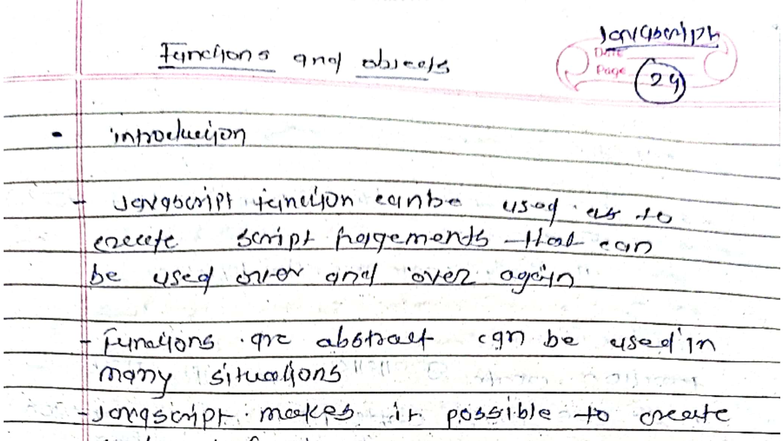 Javascript
Functions and objects
Date
Page
24
• introduction
- Javascript function can be used as to
create script fragements that can
be used over and over again
- Functions are abstract can be used in
many situations
- Javascript makes it possible to create